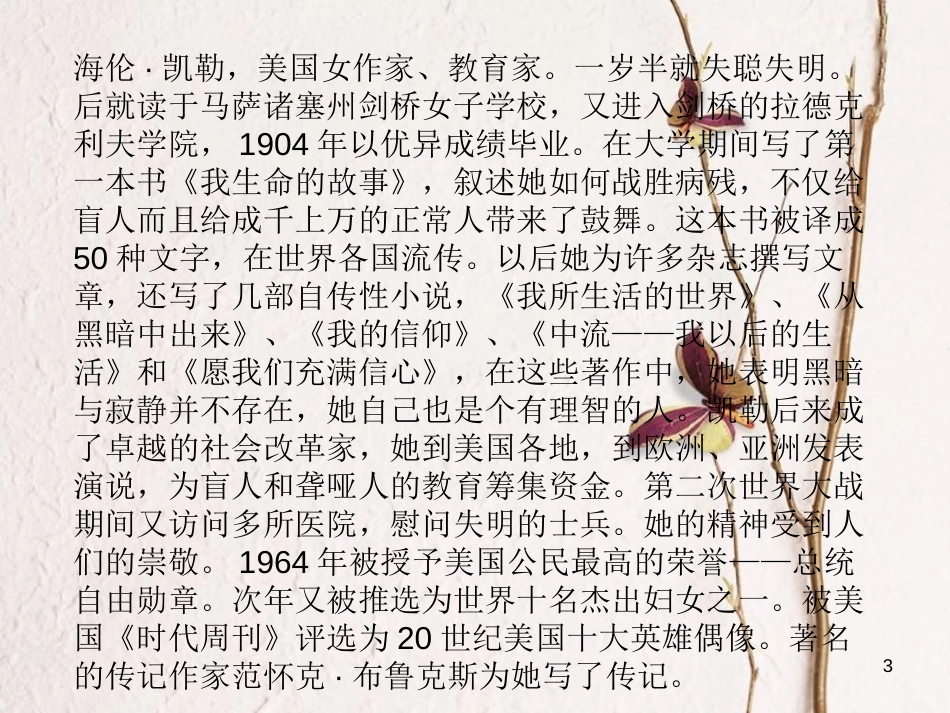 海伦·凯勒，美国女作家、教育家。一岁半就失聪失明。
后就读于马萨诸塞州剑桥女子学校，又进入剑桥的拉德克
利夫学院， 1904 年以优异成绩毕业。在大学期间写了第
一本书《我生命的故事》，叙述她如何战胜病残，不仅给
盲人而且给成千上万的正常人带来了鼓舞。这本书被译成
50 种文字，在世界各国流传。以后她为许多杂志撰写文
章，还写了几部自传性小说，《我所生活的世界》、《从
黑暗中出来》、《我的信仰》、《中流——我以后的生
活》和《愿我们充满信心》，在这些著作中，她表明黑暗
与寂静并不存在，她自己也是个有理智的人。凯勒后来成
了卓越的社会改革家，她到美国各地，到欧洲、亚洲发表
演说，为盲人和聋哑人的教育筹集资金。第二次世界大战
期间又访问多所医院，慰问失明的士兵。她的精神受到人
们的崇敬。 1964 年被授予美国公民最高的荣誉——总统
自由勋章。次年又被推选为世界十名杰出妇女之一。被美
国《时代周刊》评选为 20 世纪美国十大英雄偶像。著名
的传记作家范怀克·布鲁克斯为她写了传记。
3